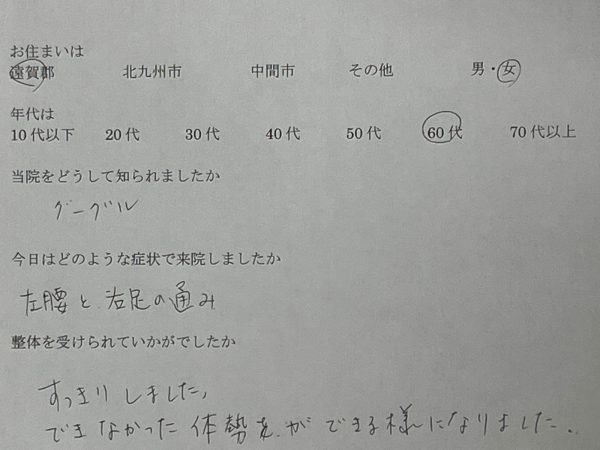 お住まいは
遠賀郡 北九州市 中間市 その他 男・女
年代は
10代以下 20代 30代 40代 50代 60代 70代以上
当院をどうして知られましたか
グーグル
今日はどのような症状で来院しましたか
左腰と右足の痛み
整体を受けられていかがでしたか
すっきりしました。
できなかった体勢をができる様になりました。